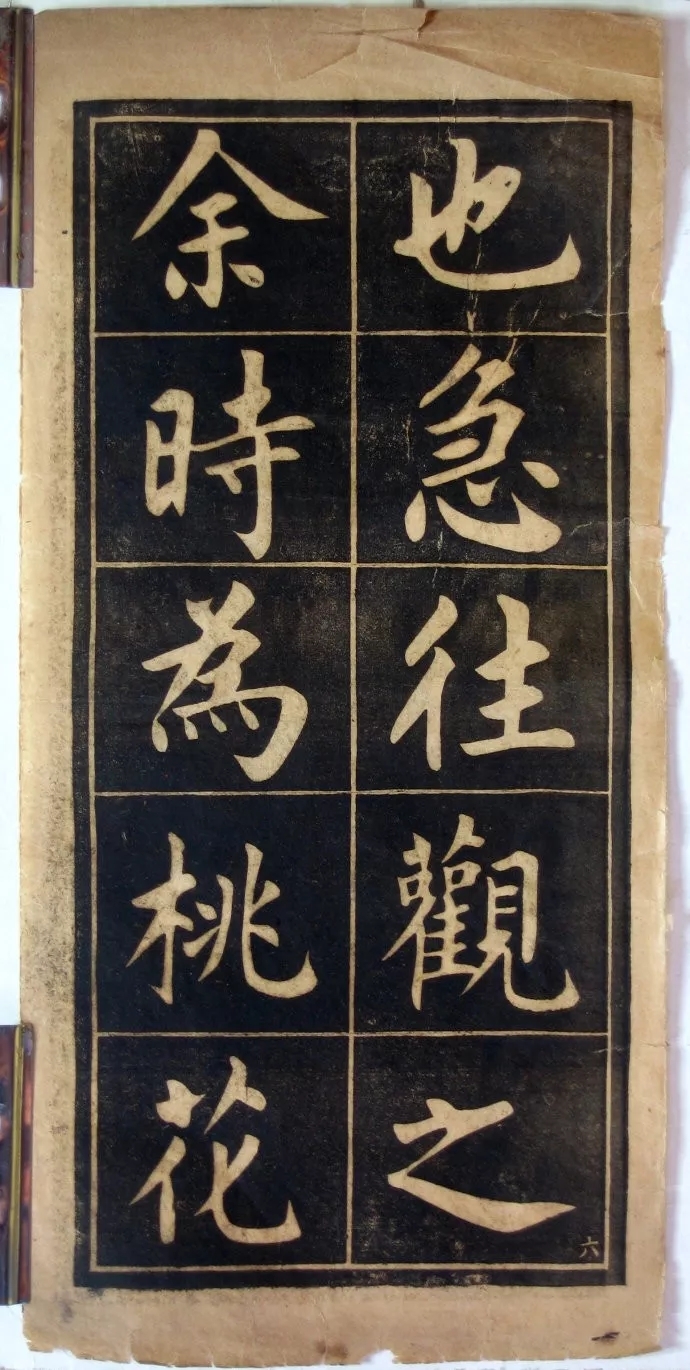 也急往觀之
六
余時為桃花